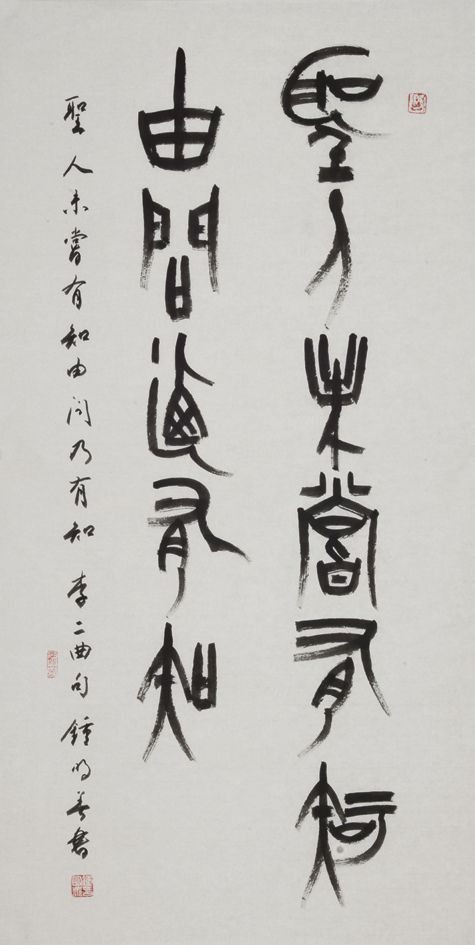 聖人未嘗有知
由問廼有知
聖人未嘗有知由问乃有知 李二曲句 鍾明善書